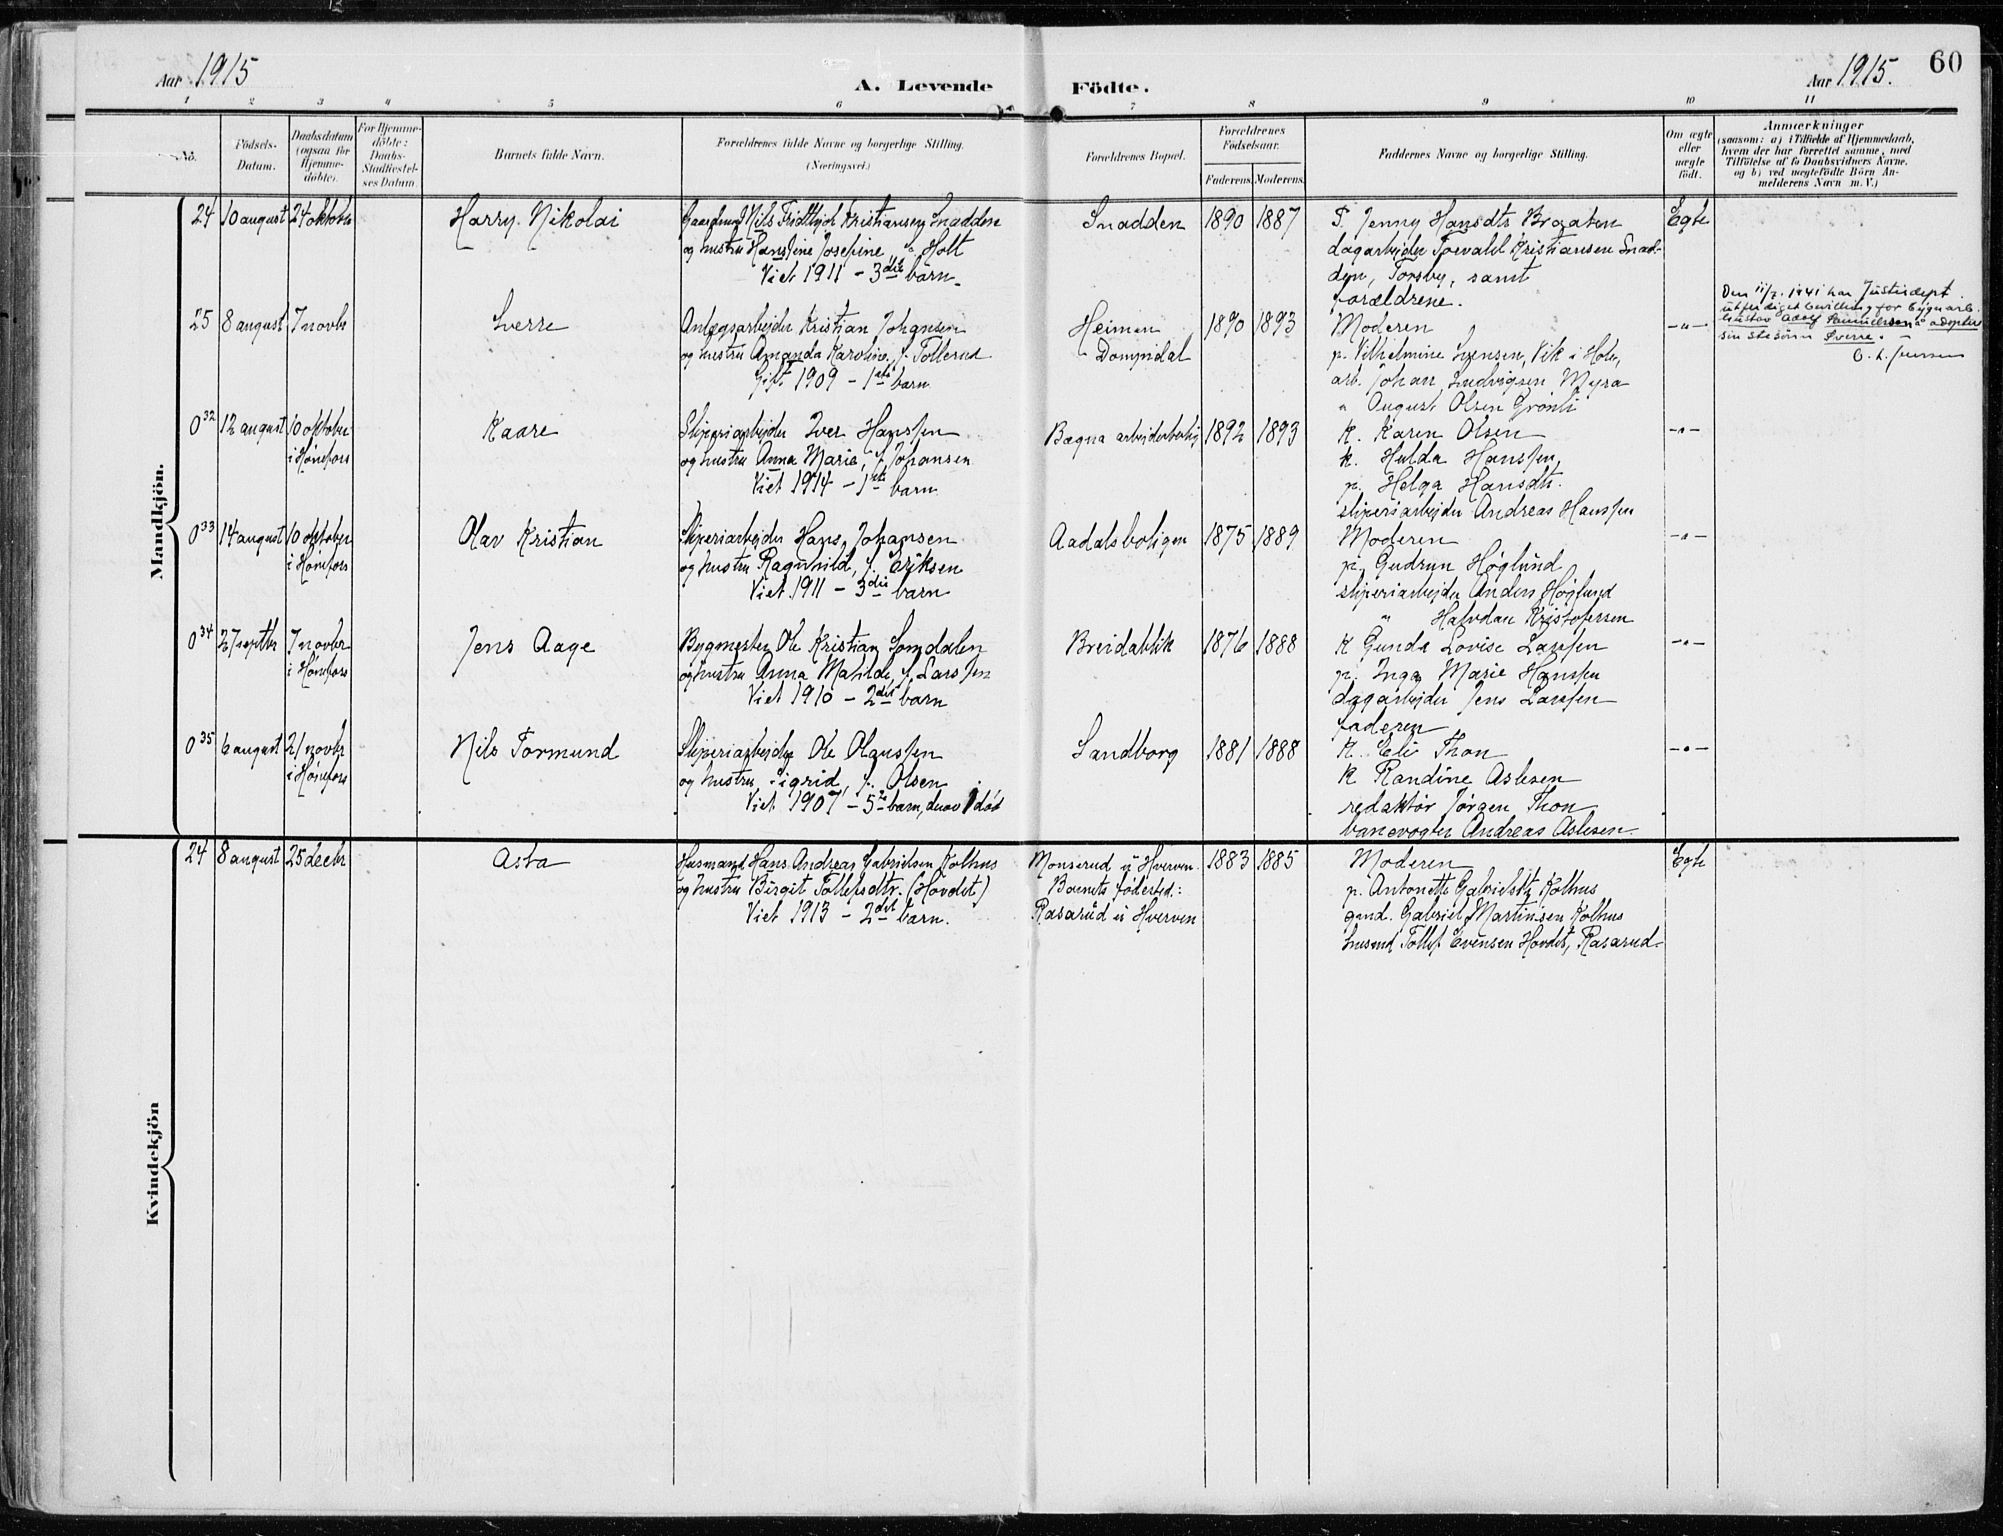 Aar 1915
A. Levende Födte.
Aar 1915.
60
1 2 3 4 5 6 7 8 9 10 11
No.
Födsels-
Datum.
Daabsdatum
(ogsaa for
Hjemme-
döbte).
For Hjemme-
döbte:
Daabs-
Stadfæstel-
ses Datum.
Barnets fulde Navn.
Forældrenes fulde Navne og borgerlige Stilling.
(Næringsvei.)
Forældrenes Bopæl.
Forældrenes
Födselsaar.
Faderens. Moderens.
Faddernes Navne og borgerlige Stilling.
Om ægte
eller
uægte
födt.
Anmærkninger
(saasom: a) i Tilfælde af Hjemmedaab,
hvem der har forrettet samme, med
Tilföielse af to Daabsvidners Navne,
og b) ved uægtefödte Börn An-
melderens Navn m. V.)
Mandkjön.
24 10 august 24 oktober
Harry Nikolai
Nils Fridthjof Kristiansen Snadden
og hustru Hansine Josefine f. Holt
Viet 1911 – 3die barn.
Snadden
1890 1887
P. Jenny Hansdtr Braaten
dagarbejder Torvald Kristiansen Snad-
den, Torsby, samt
forældrene.
Egte
25 8 august 7 novbr
Sverre
Anlægsarbejder Kristian Johansen
og hustru Amanda Karoline f. Tollerud
Gift 1909 – 1ste barn
Heimen
Dompidal
1890 1893
Moderen
p. Vilhelmine Svensen, Vik i Hole,
arb. Johan Ludvigsen Myra
" August Olsen Grönli
–"–
Den 11/7 1941 har Justisdept
utferdiget bevilling for bygn.arb.
Gustav Adolf Samuelsen å adoptere
sin stesönn Sverre. –
032 12 august 10 oktober
i Hönefoss
Kaare
Sliperiarbejder Iver Hanssen
og hustru Anna Marie, f. Johansen
Viet 1914 – 1ste barn
Bægna arbejderbolig
1892 1893
K. Karen Olsen
k. Hulda Hanssen,
p. Helga Hansdtr.
sliperiarbejder Andreas Hanssen
–"–
033 14 august 10 oktober
i Hönefoss
Olav Kristian
Sliperiarbejder Hans Johansen
og hustru Ragnhild, f. Eriksen
Viet 1911 – 3die barn
Aadalsboligen
1875 1889
Moderen
p. Gudrun Höglund
sliperiarbejder Anders Höglund
" Halvdan Kristofersen
–"–
034 27 septbr 7 novbr
i Hönefoss
Jens Aage
Bygmester Ole Kristian Somdalen
og hustru Anna Mathilde, f. Larssen
Viet 1910 – 2det barn
Breidablik
1876 1888
K Gunda Lovise Larssen
p. Inga Marie Hanssen
dagarbejder Jens Larssen
faderen
–"–
035 6 august 21 novbr
i Hönefoss
Nils Tormund
Sliperiarbejder Ole Olaussen
og hustru Sigrid, f. Olsen
Viet 1907 – 5te barn, derav 1 död
Sandborg
1881 1888
K. Eli Thon
K Randine Aslesen
redaktör Jörgen Thon
banevogter Andreas Aslesen
–"–
Kvindekjön
24 8 august 25 decbr
Asta
Husmand Hans Andreas Gabrielsen Kolhus
og hustru Birgit Tollefsdtr. (Hovdet)
Viet 1913 – 2det barn.
Monserud u Hverven
Barnets födested:
Rasarud u Hverven
1883 1885
Moderen
p. Antonette Gabrielsdtr. Kolhus
gmd. Gabriel Martinsen Kolhus
husmd Tollef Evensen Hovdet, Rasarud
Egte